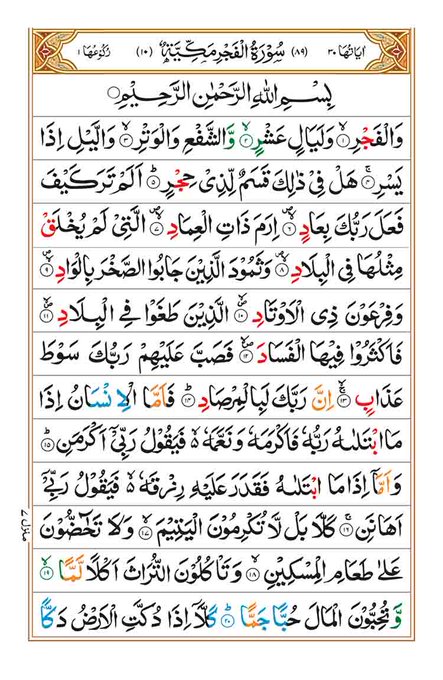 اٰیَاتُهَا ٣٠ (٨٩) سُوْرَةُ الْفَجْرِ مَكِّيَّةٌ (١٠) رُكُوْعُهَا ١
بِسْمِ اللّٰهِ الرَّحْمٰنِ الرَّحِيْمِ
وَالْفَجْرِ ۙ﴿١﴾ وَلَيَالٍ عَشْرٍ ۙ﴿٢﴾ وَّالشَّفْعِ وَالْوَتْرِ ۙ﴿٣﴾ وَالَّيْلِ اِذَا
يَسْرِ ۚ﴿٤﴾ هَلْ فِيْ ذٰلِكَ قَسَمٌ لِّذِيْ حِجْرٍ ؕ﴿٥﴾ اَلَمْ تَرَ كَيْفَ
فَعَلَ رَبُّكَ بِعَادٍ ۪ۙ﴿٦﴾ اِرَمَ ذَاتِ الْعِمَادِ ۪ۙ﴿٧﴾ الَّتِيْ لَمْ يُخْلَقْ
مِثْلُهَا فِي الْبِلَادِ ۪ۙ﴿٨﴾ وَثَمُوْدَ الَّذِيْنَ جَابُوا الصَّخْرَ بِالْوَادِ ۪ۙ﴿٩﴾
وَفِرْعَوْنَ ذِي الْاَوْتَادِ ۪ۙ﴿١٠﴾ الَّذِيْنَ طَغَوْا فِي الْبِلَادِ ۪ۙ﴿١١﴾
فَاَكْثَرُوْا فِيْهَا الْفَسَادَ ۪ۙ﴿١٢﴾ فَصَبَّ عَلَيْهِمْ رَبُّكَ سَوْطَ
عَذَابٍ ۚۙ﴿١٣﴾ اِنَّ رَبَّكَ لَبِالْمِرْصَادِ ؕ﴿١٤﴾ فَاَمَّا الْاِنْسَانُ اِذَا
مَا ابْتَلٰىهُ رَبُّهٗ فَاَكْرَمَهٗ وَنَعَّمَهٗ ۙ۬ فَيَقُوْلُ رَبِّيْۤ اَكْرَمَنِ ؕ﴿١٥﴾
وَاَمَّاۤ اِذَا مَا ابْتَلٰىهُ فَقَدَرَ عَلَيْهِ رِزْقَهٗ ۙ۬ فَيَقُوْلُ رَبِّيْۤ
اَهَانَنِ ۚ﴿١٦﴾ كَلَّا بَلْ لَّا تُكْرِمُوْنَ الْيَتِيْمَ ۙ﴿١٧﴾ وَلَا تَحٰٓضُّوْنَ
عَلٰى طَعَامِ الْمِسْكِيْنِ ۙ﴿١٨﴾ وَتَاْكُلُوْنَ التُّرَاثَ اَكْلًا لَّمًّا ۙ﴿١٩﴾
وَّتُحِبُّوْنَ الْمَالَ حُبًّا جَمًّا ؕ﴿٢٠﴾ كَلَّاۤ اِذَا دُكَّتِ الْاَرْضُ دَكًّا
منزل ٧